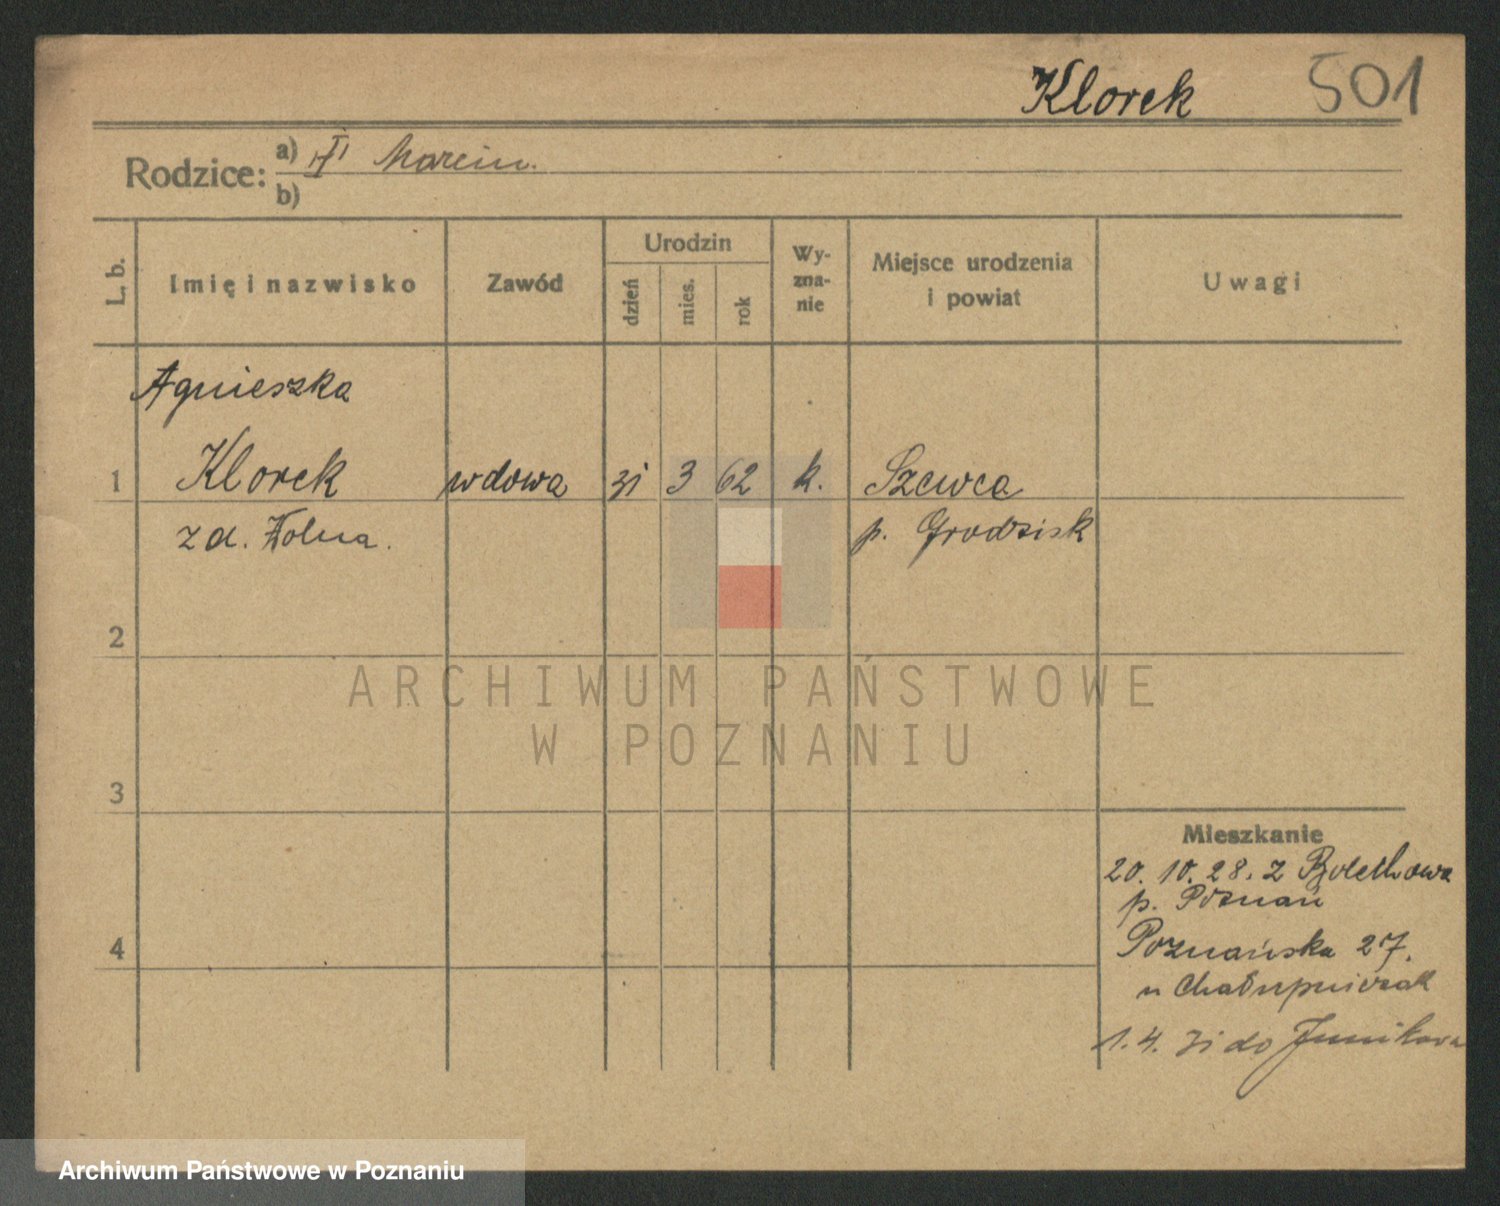 Klorek 501
Rodzice: a) Marcin.
b)
L. b. Imię i nazwisko Zawód Urodzin dzień mies. rok Wy-zna-nie Miejsce urodzenia i powiat Uwagi
Agnieszka
1 Klorek wdowa 31 3 62 k. Szewce
z d. Wolna. p. Grodzisk
2
ARCHIWUM PAŃSTWOWE
W POZNANIU
3
Mieszkanie
20. 10. 28. z Bolechowa
p. Poznań
4 Poznańska 27.
u Chałupniczak
1. 4. 31 do Junikowa
Archiwum Państwowe w Poznaniu